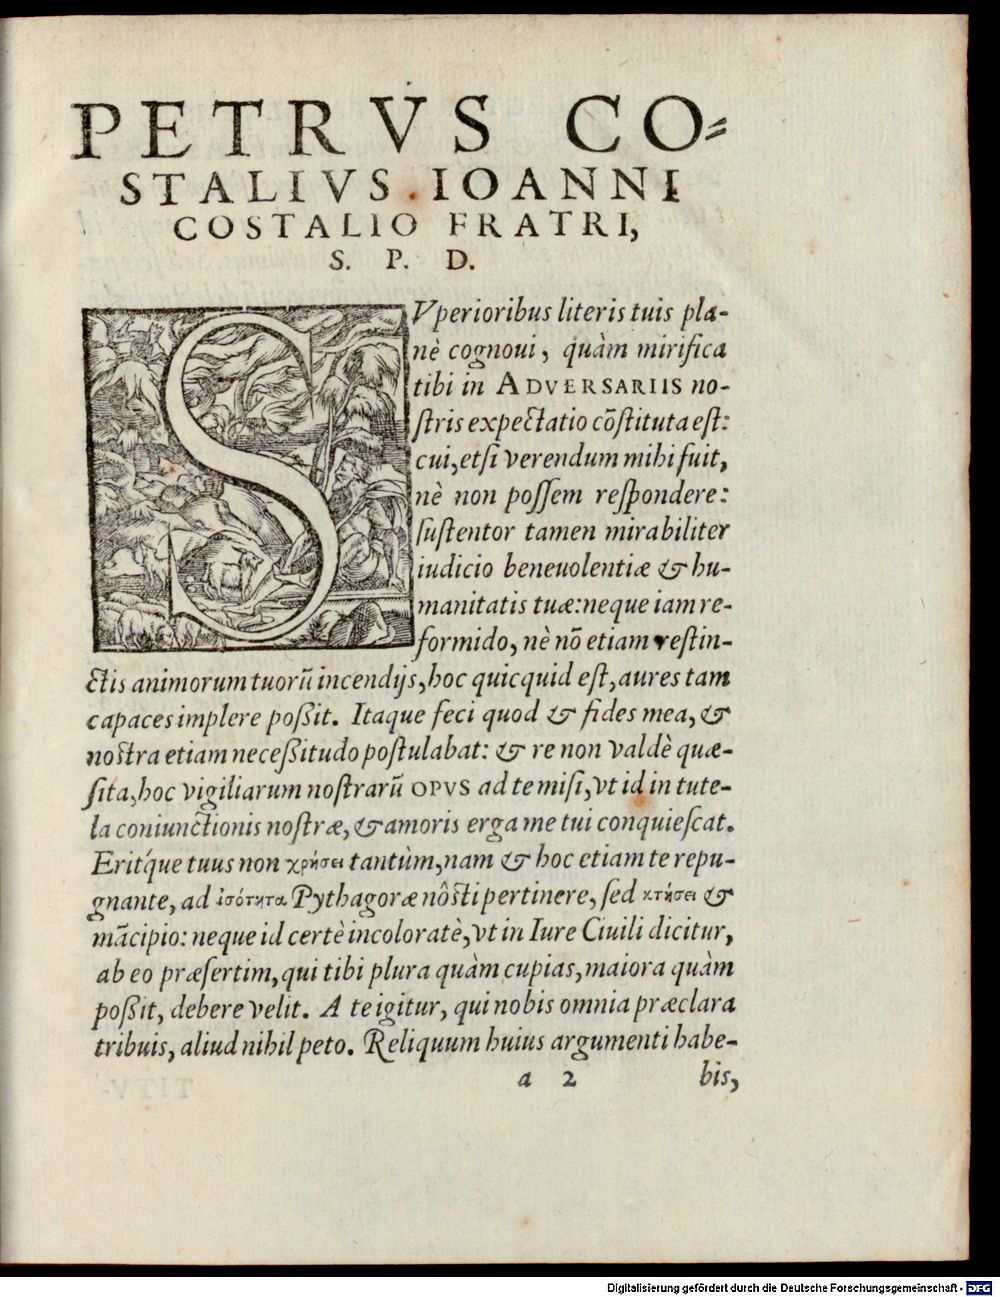 PETRVS CO-
STALIVS IOANNI
COSTALIO FRATRI,
S. P. D.
SVperioribus literis tuis pla-
nè cognoui, quàm mirifica
tibi in ADVERSARIIS no-
ſtris expectatio cõſtituta eſt:
cui, etſi verendum mihi fuit,
nè non poſſem reſpondere:
ſuſtentor tamen mirabiliter
iudicio beneuolentiæ & hu-
manitatis tuæ: neque iam re-
formido, nè nõ etiam reſtin-
ctis animorum tuorũ incendijs, hoc quicquid eſt, aures tam
capaces implere poßit. Itaque feci quod & fides mea, &
noſtra etiam neceßitudo poſtulabat: & re non valdè quæ-
ſita, hoc vigiliarum noſtrarũ OPVS ad te miſi, vt id in tute-
la coniunctionis noſtræ, & amoris erga me tui conquieſcat.
Eritq́ue tuus non χρήσει tantùm, nam & hoc etiam te repu-
gnante, ad ἰσότητα Pythagoræ nôſti pertinere, ſed κτήσει &
mãcipio: neque id certè incoloratè, vt in Iure Ciuili dicitur,
ab eo præſertim, qui tibi plura quàm cupias, maiora quàm
poßit, debere velit. A te igitur, qui nobis omnia præclara
tribuis, aliud nihil peto. Reliquum huius argumenti habe-
a 2 bis,
Digitalisierung gefördert durch die Deutsche Forschungsgemeinschaft - DFG